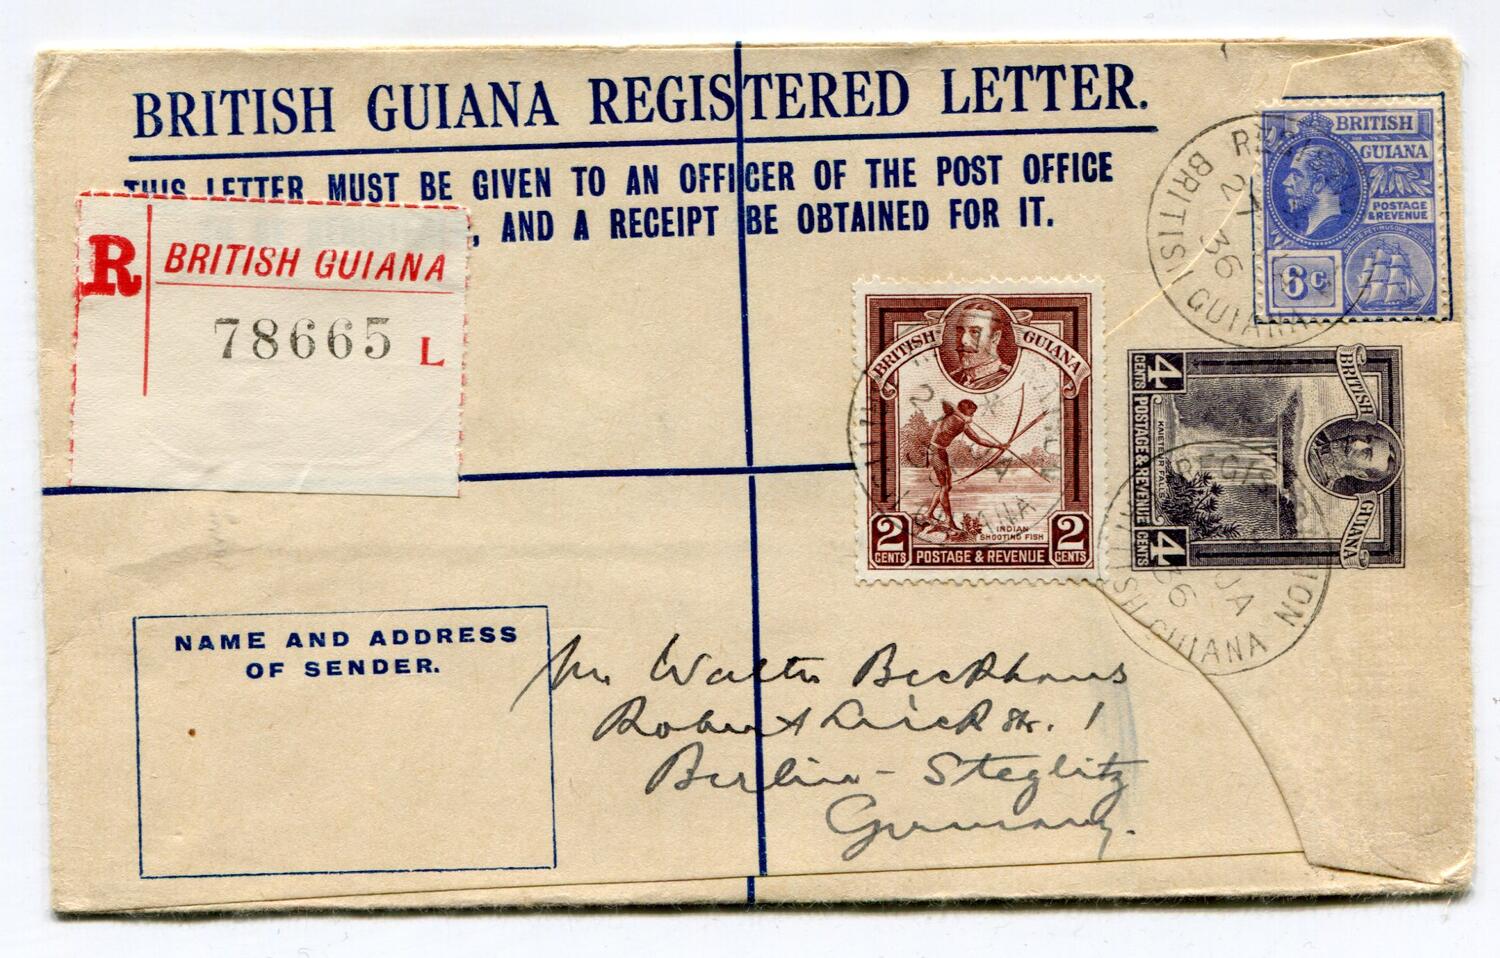 BRITISH GUIANA REGISTERED LETTER.
THIS LETTER MUST BE GIVEN TO AN OFFICER OF THE POST OFFICE
, AND A RECEIPT BE OBTAINED FOR IT.
R BRITISH GUIANA
78665 L
BRITISH
GUIANA
POSTAGE
&REVENUE
DAMUS PETIMUSQUE VICISSIM
6c
REGISTRATION
21 JA
36
BRITISH GUIANA
BRITISH GUIANA
INDIAN
SHOOTING FISH
2 CENTS POSTAGE & REVENUE 2 CENTS
21 JA
GUIANA
BRITISH GUIANA
KAIETEUR FALLS
4 CENTS POSTAGE & REVENUE 4 CENTS
REGISTRATION
JA
36
BRITISH GUIANA
NAME AND ADDRESS
OF SENDER.
Mr Walter Beckhaus
Robert Str. 1
Berlin - Steglitz
Germany.